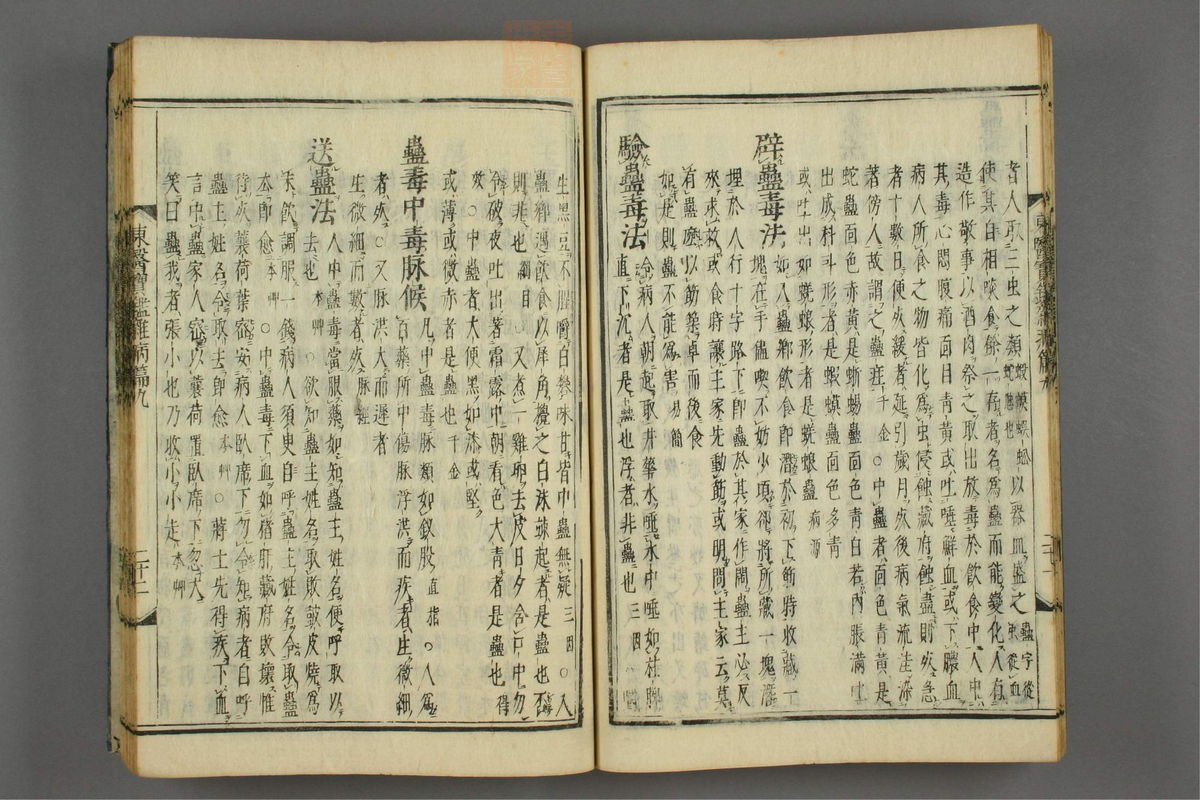 者人取三虫之類蝦蟆蜈蚣蛇虺也以器皿盛之蟲字從蟲從皿
使其自相啖食餘一存者名爲蠱而能變化人有
造作敬事以酒肉祭之取出放毒於飮食中人中
其毒心悶腹痛面目青黃或吐唾鮮血或下膿血
病人所食之物皆化爲虫侵蝕藏府蝕盡則死急
者十數日便死緩者延引歲月死後病氣流注染
著傍人故謂之蠱疰千金○中蠱者面色青黃是
蛇蠱面色赤黃是蜥蜴蠱面色青白若內脹滿吐
出成科斗形者是蝦蟆蠱面色多青
或吐出如蜣蜋形者是蜣蜋蠱病源
辟蠱毒法如入蠱鄕飮食卽潛於初下筯時收藏一
塊在手儘喫不妨少頃却將所藏一塊潛
埋於人行十字路下卽蠱於其家作閙蠱主必反
來求救或食時讓主家先動筯或明問主家云莫
有蠱麽以筯築卓而後食
如是則蠱不能爲害易簡
驗蠱毒法令病人朝起取井華水唾水中唾如柱脚
直下沉者是蠱也浮者非蠱也三因
東醫寶鑑雜病篇九
生黑豆不腥嚼白礬味甘皆中蠱無疑三因○入
蠱鄕遇飮食以犀角攪之白沫竦起者是蠱也否
則非也綱目○又煮一雞卵去皮日夕含口中勿
令破夜吐出著霜露中朝看色大青者是蠱也得
效○中蠱者大便黑如漆或堅
或薄或微赤者是蠱也千金
蠱毒中毒脉候凡中蠱毒脉類如釵股直指○人爲
百藥所中傷脉浮洪而疾者生微細
者死○又脉洪大而遲者
生微細而數者死脉經
送蠱法人中蠱毒當服藥如知蠱主姓名便呼取以
去也本草○欲知蠱主姓名取敗鼓皮燒爲
末飮調服一錢病人須臾自呼蠱主姓名令取蠱
去卽愈本草○中蠱毒下血如猪肝藏府敗壞惟
待死蘘荷葉密安病人臥席下勿令知病者自呼
蠱主姓名令取去卽愈本草○蔣士先得疾下血
言中蠱家人密以蘘荷置臥席下忽大
笑曰蠱我者張小也乃收小小走本草
東醫寶鑑雜病篇九
二十二